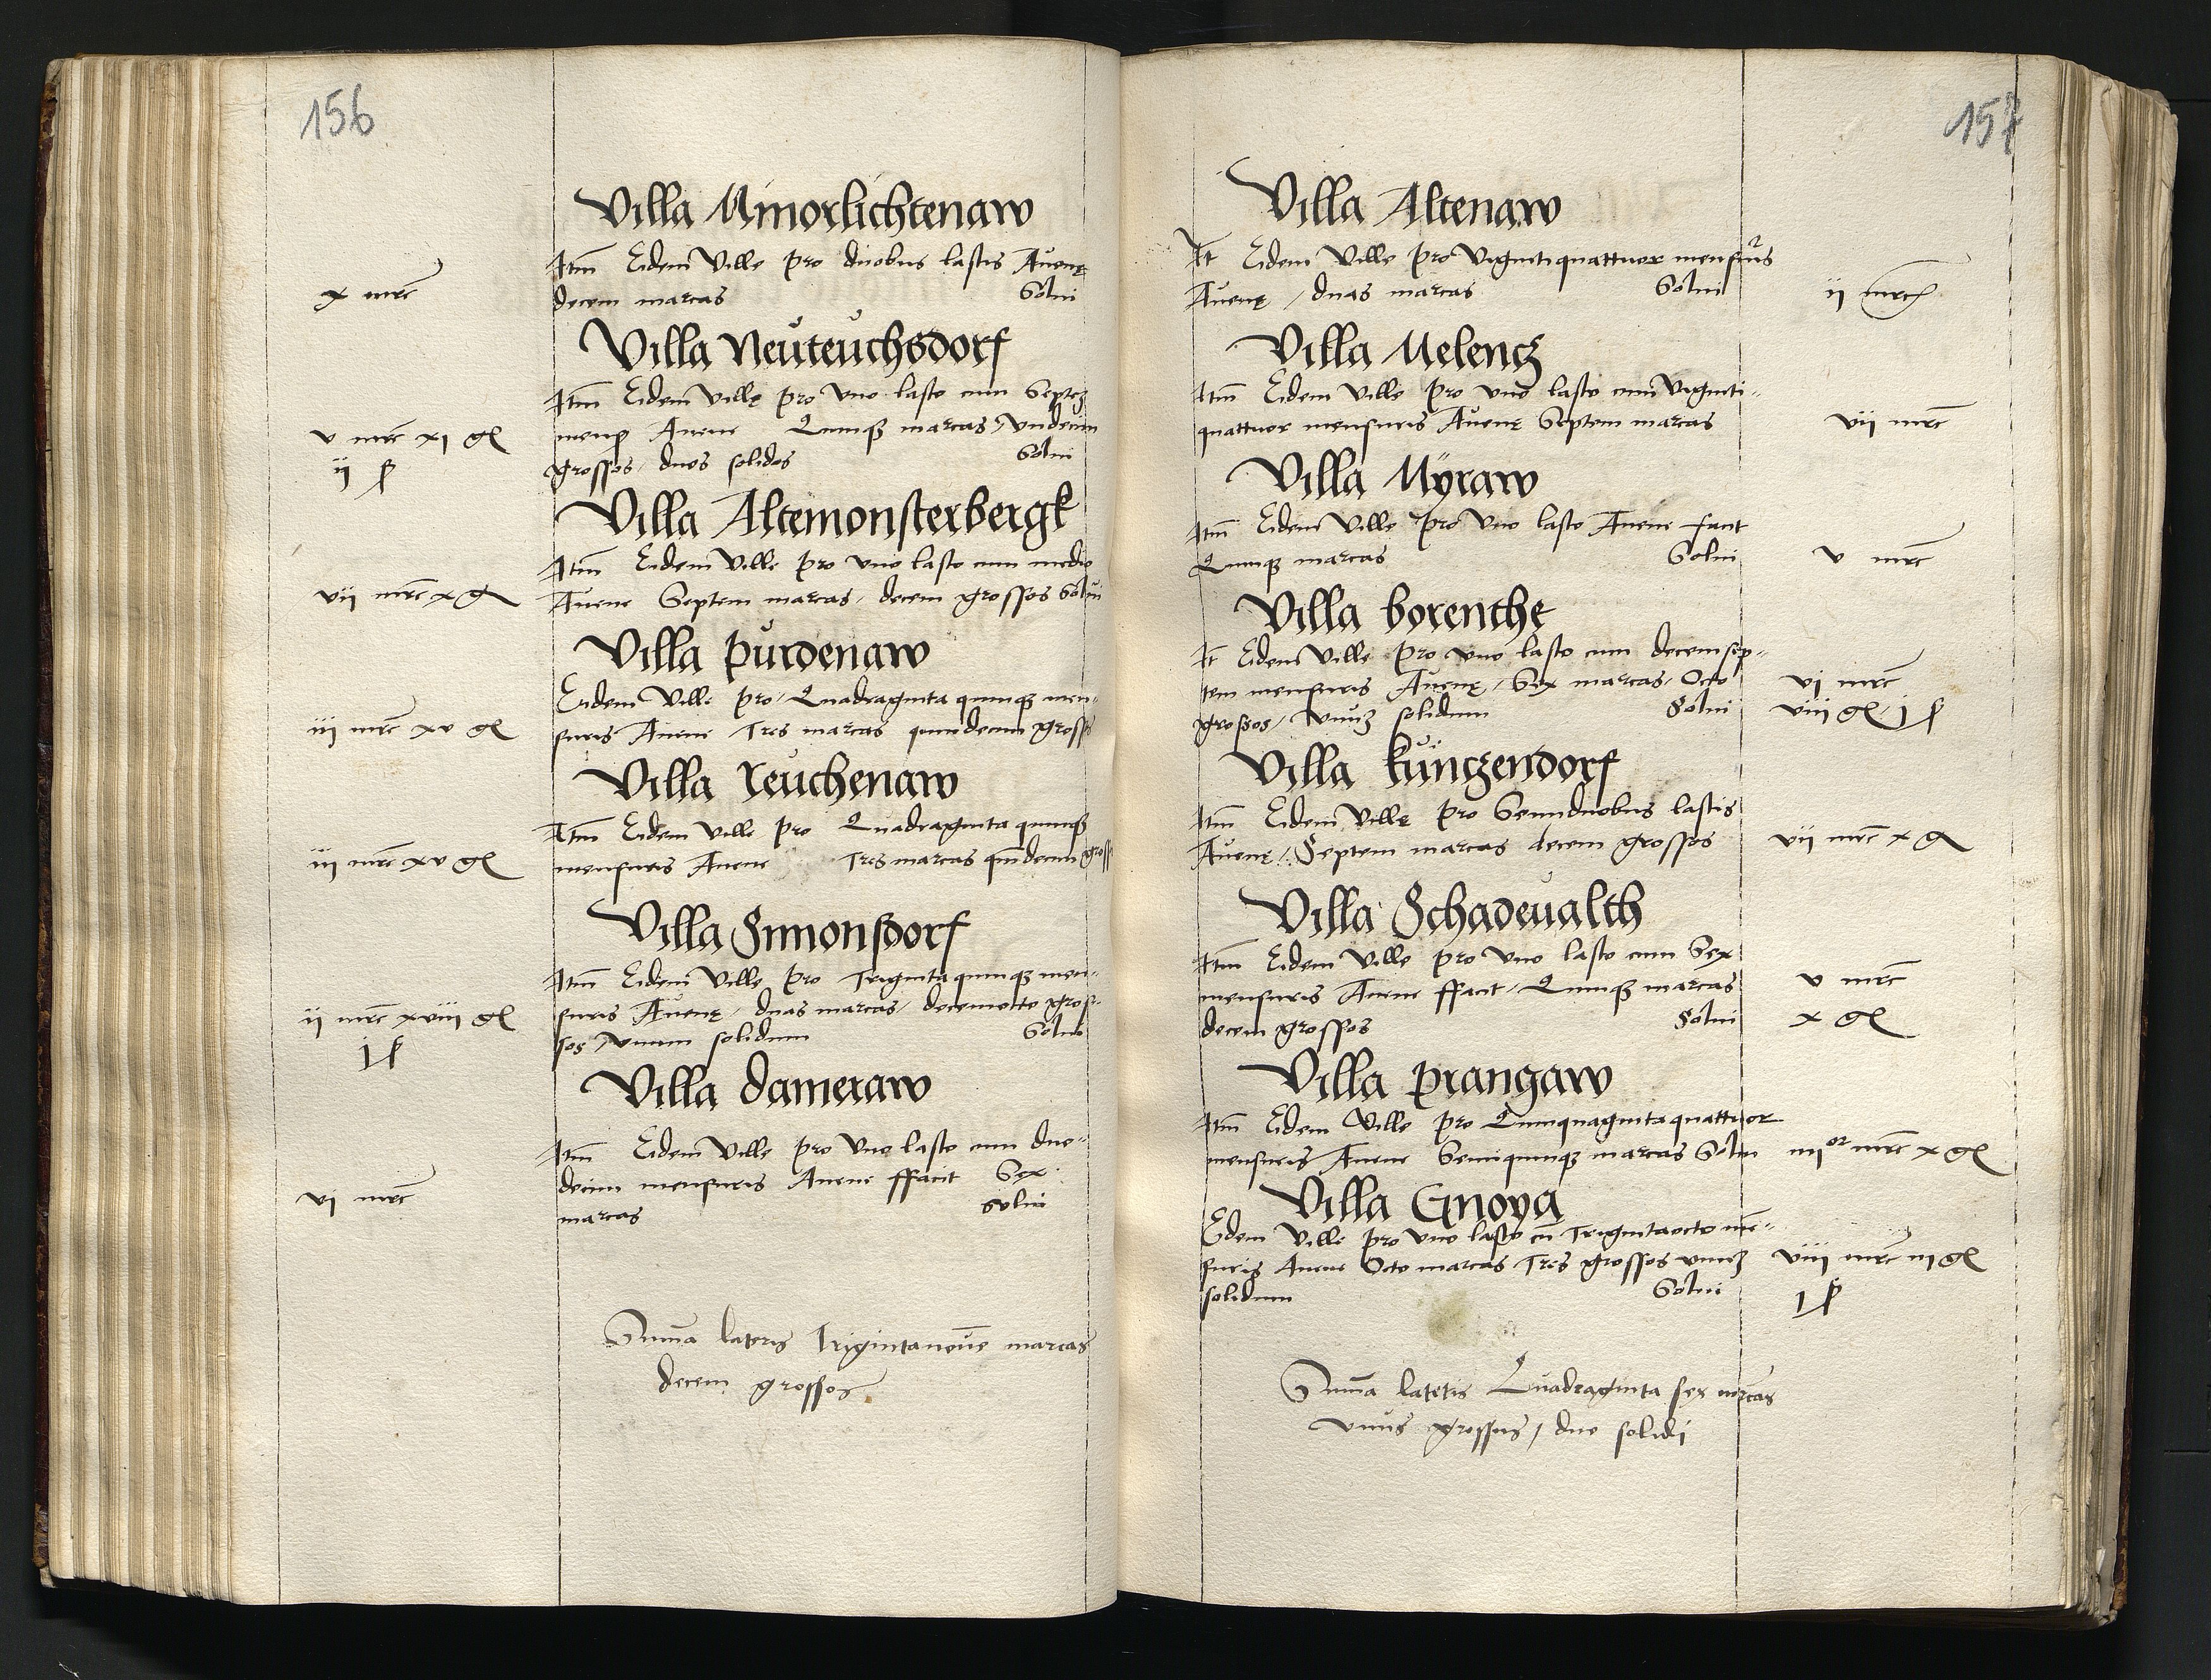 156
Villa Minorlichtenaw
Itm Eidem Ville pro duobus lastis Avenę
x mrc decem marcas Solui
Villa Neuteuchsdorf
Itm Eidem villę pro Vno lasto cum Septez
v mrc xi gl mens Avene Quinqz marcas, Vndecim
ii ſ grossos, duos solidos Solui
Villa Altemonsterbergk
Itm Eidem Ville pro vno lasto cum medio
vii mrc x g Avene Septem marcas, decem grossos Solui
Villa purdenaw
Eidem Ville pro, Quadraginta quinqz men-
iii mrc xv gl suris Avene Tres marcas quindecim gross
Villa Reuchenaw
Itm Eidem Ville pro Quadraginta quinqz
iii mrc xv gl mensuris Avene Tres marcas qindecim gross
Villa Simonsdorf
Itm Eidem Ville pro Triginta quinqz men-
ii mrc xviii gl suris Avenę, duas marcas, decemocto gros-
i ſ sos, vnum solidum Solui
Villa dameraw
Itm Eidem Ville pro Vno lasto cum duo-
decim mensuris Avene ffacit Sex
vi mrc marcas Solui
Suma lateris Trigintanoue marcas
decem grossos
157
Villa Altenaw
It Eidem Ville pro Vigintiquattuor mensuris
Avenę, duas marcas Solui ii mrc
Villa Melencz
Itm Eidem Ville pro vno lasto cum Viginti-
quattuor mensuris Avenę Septem marcas vii mrc
Villa Myraw
Itm Eidem Ville pro Vno lasto Avene facit
Quinqz marcas Solui v mrc
Villa borenthe
It Eidem Ville pro vno lasto cum decemsep-
tem mensuris Avenę, Sex marcas, Octo vi mrc
grossos, vnuz solidum Solui viii gl, i ſ
Villa kunczendorf
Itm Eidem Villę pro Semiduobus lastis
Avenę, Septem marcas decem grossos vii mrc x g
Villa Schadeualth
Itm Eidem Ville pro Vno lasto cum Sex
mensuris Avene ffacit, Quinqz marcas v mrc
decem grossos Solui x gl
Villa prangaw
Itm Eidem Ville pro Quinquagintaquattuor
mensuris Avene Semiquinqz marcas Solui iiii or mrc x gl
Villa Gnoya
Eidem Ville pro vno lasto cu Trigintaocto me-
suris Avene Octo marcas Tres grossos vnuz viii mrc iii gl
solidum Solui i ſ
Suma lateris Quadraginta sex mrcas
vnus grossus, duo solidi